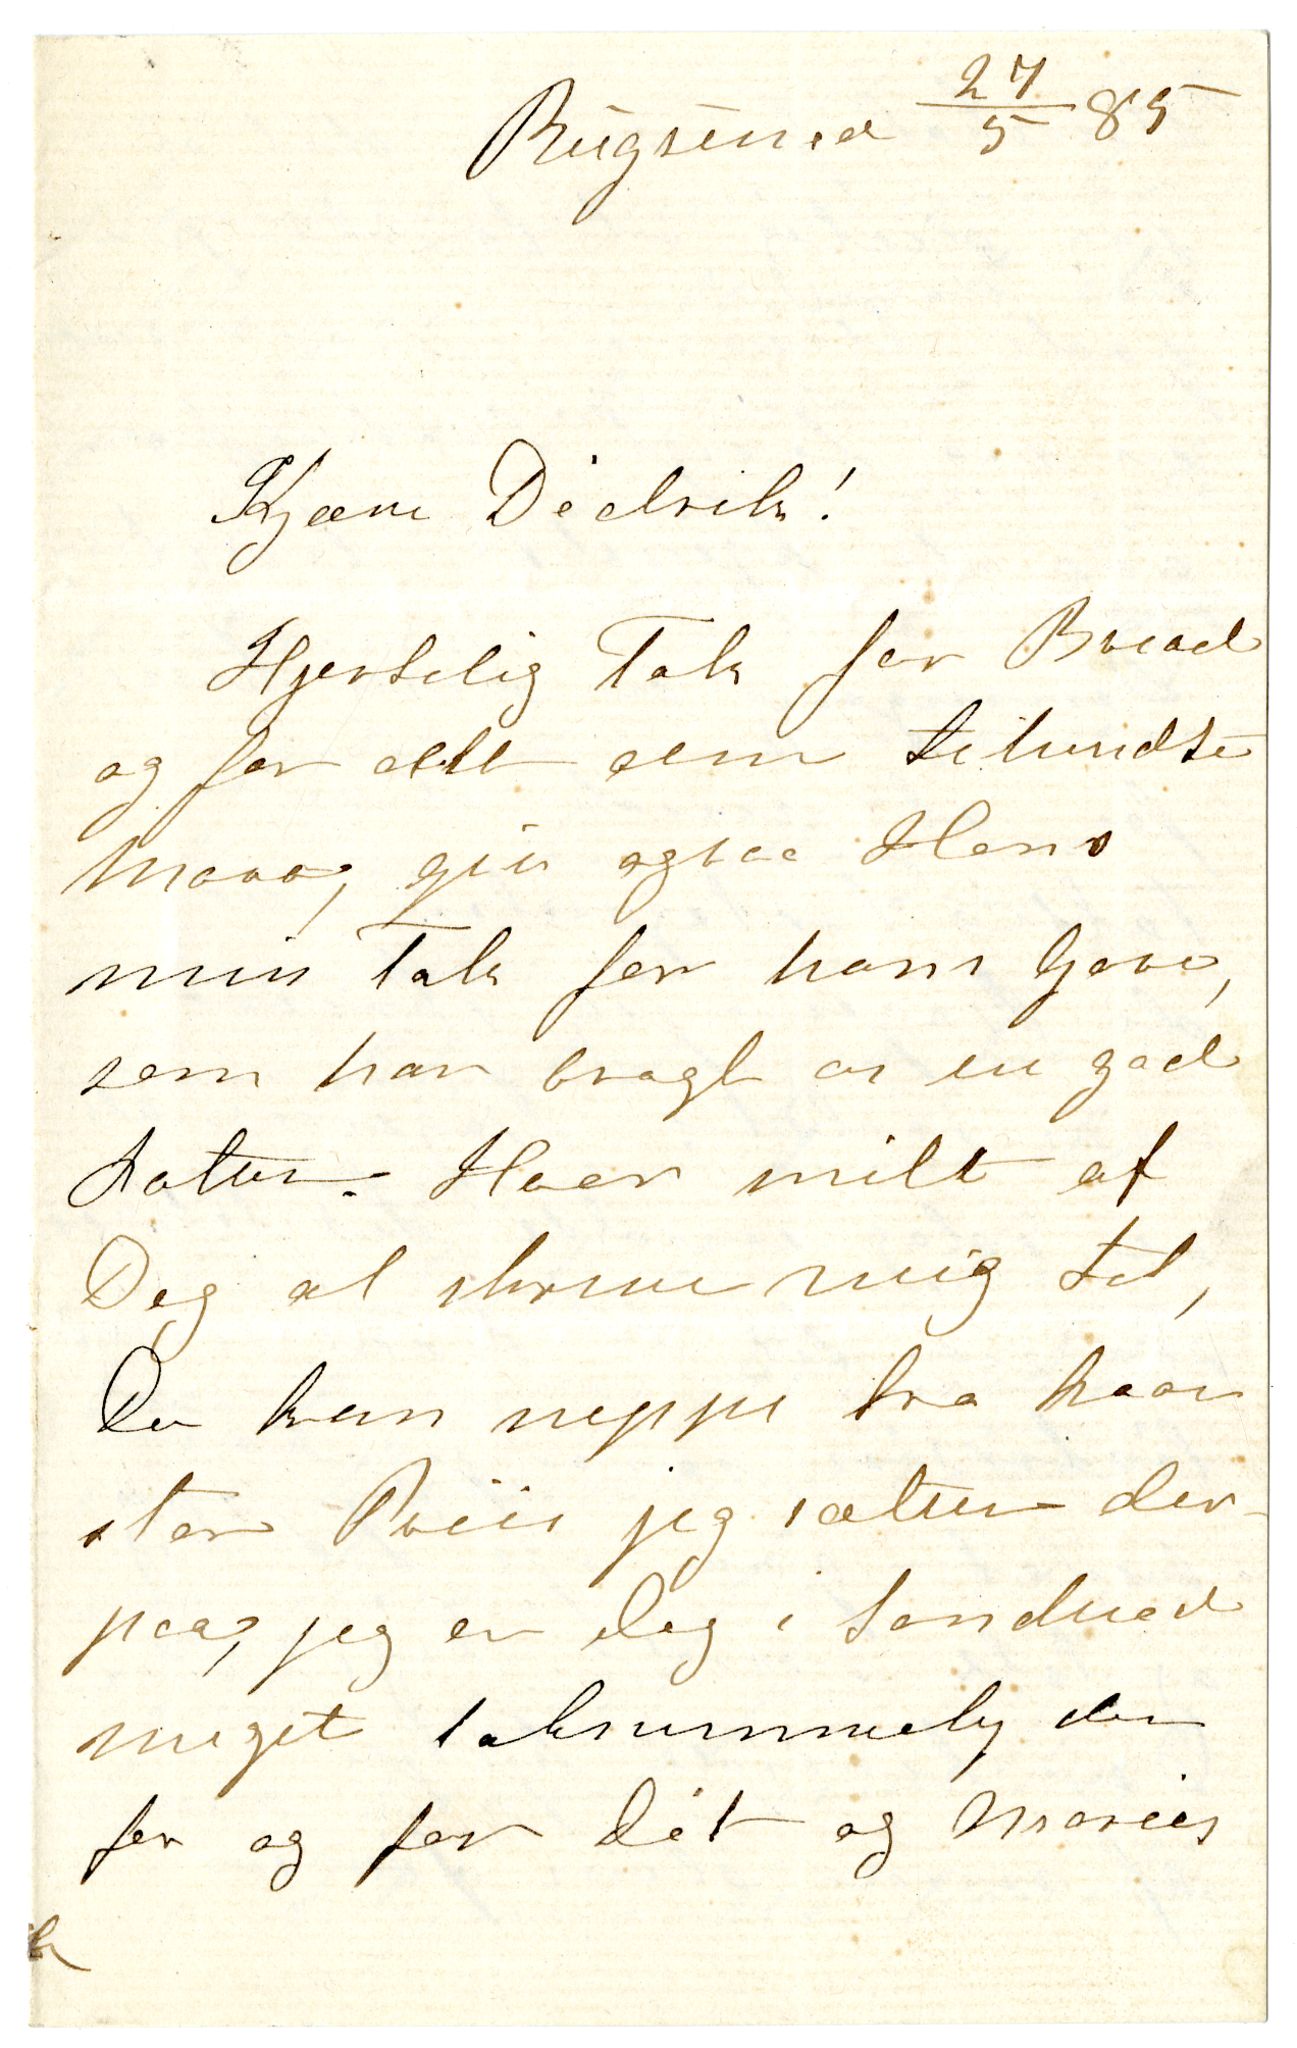 Rugsund 27/5 85
Kjære Didrik!
Hjertelig Tak for Brevet
og for alt dem tilsendte
giv ogsaa Hans
min Tak for hans Gave,
som har bragt os en god
Latter. Hver milt af
Dig at skrive mig til,
Du kan neppe tro hvor
stor Priis jeg sætter der-
paa, jeg er Dig i Sandhed
meget taknemmelig der
for og for Dit og Maries